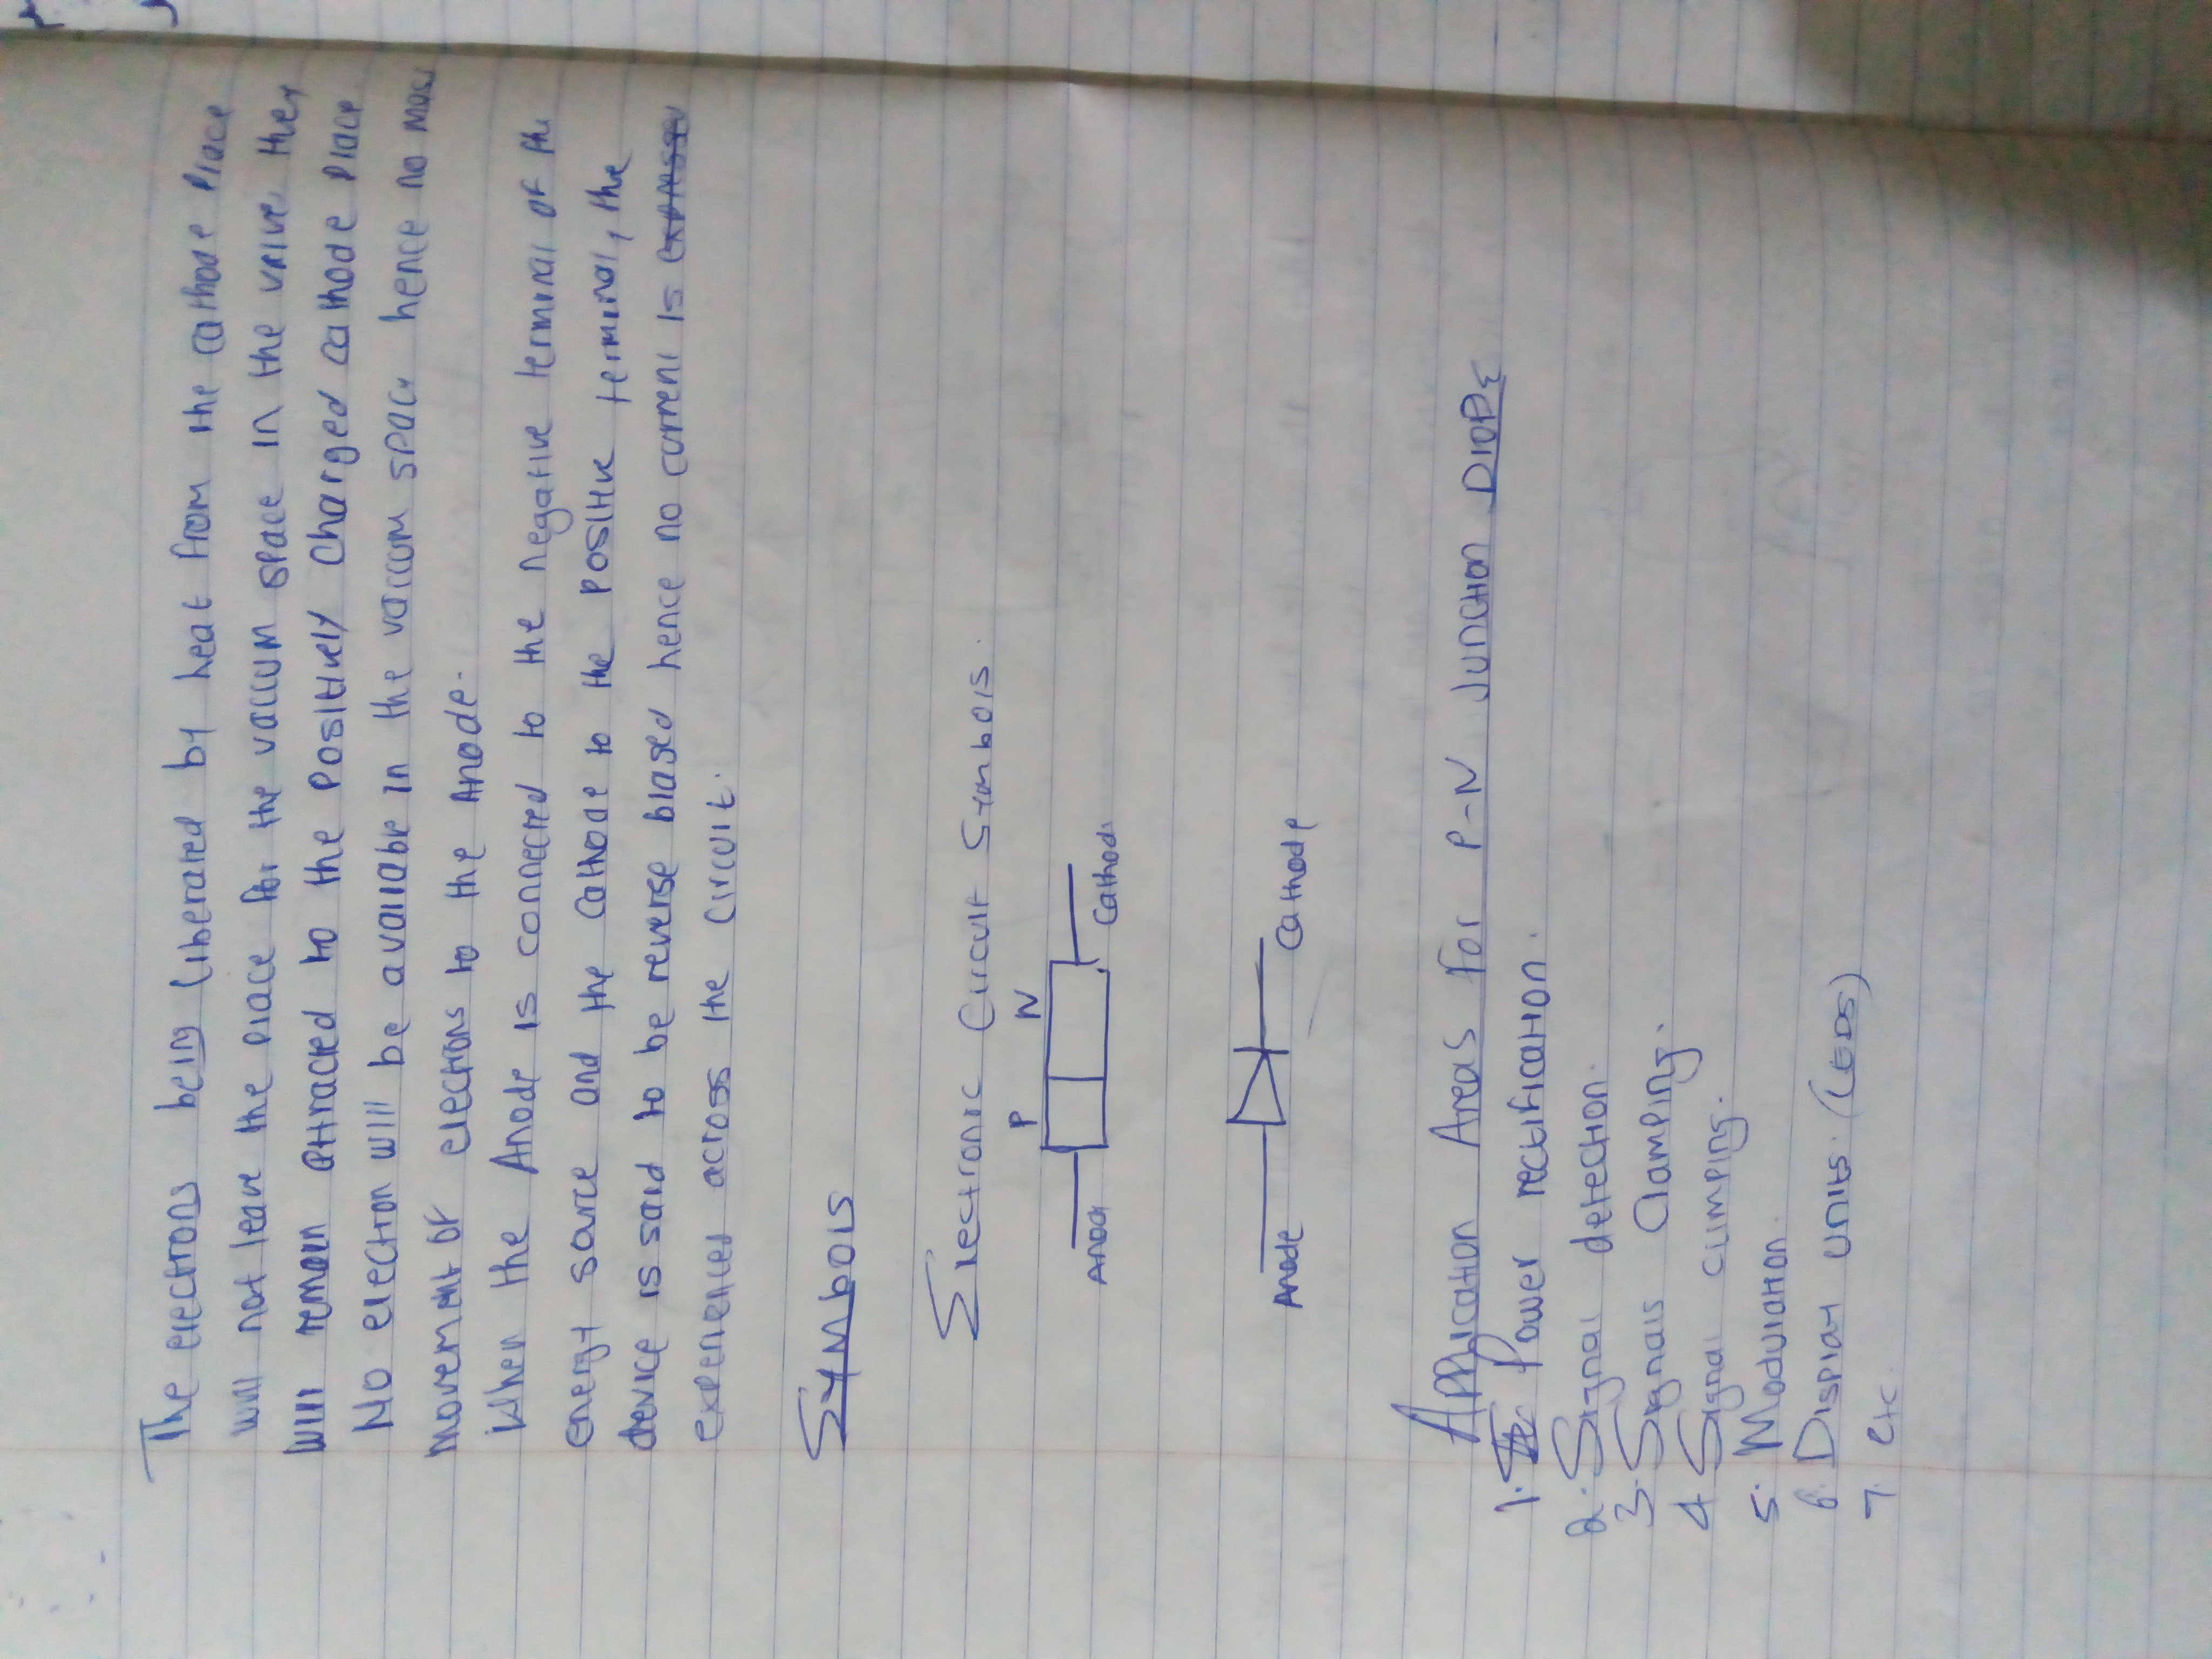 The electrons being liberated by heat from the cathode place
will not leave the place for the vaccum space in the valve. they
will remain attracted to the positively charged cathode place.
No electron will be available in the vaccum space hence no mass
movement of electrons to the Anode.
When the Anode is connected to the negative terminal of the
energy source and the cathode to the positive terminal, the
device is said to be reverse biased hence no current is
experienced across the circuit.
Symbols
Electronic Circuit Symbols.
P N
Anode Cathode
Anode Cathode
Application Areas For P-N Junction DIODE
1. Power rectification.
2. Signal detection.
3. Signals Clamping.
4 Signal climping.
5. Modulation.
6. Display units. (LEDS)
7. etc.